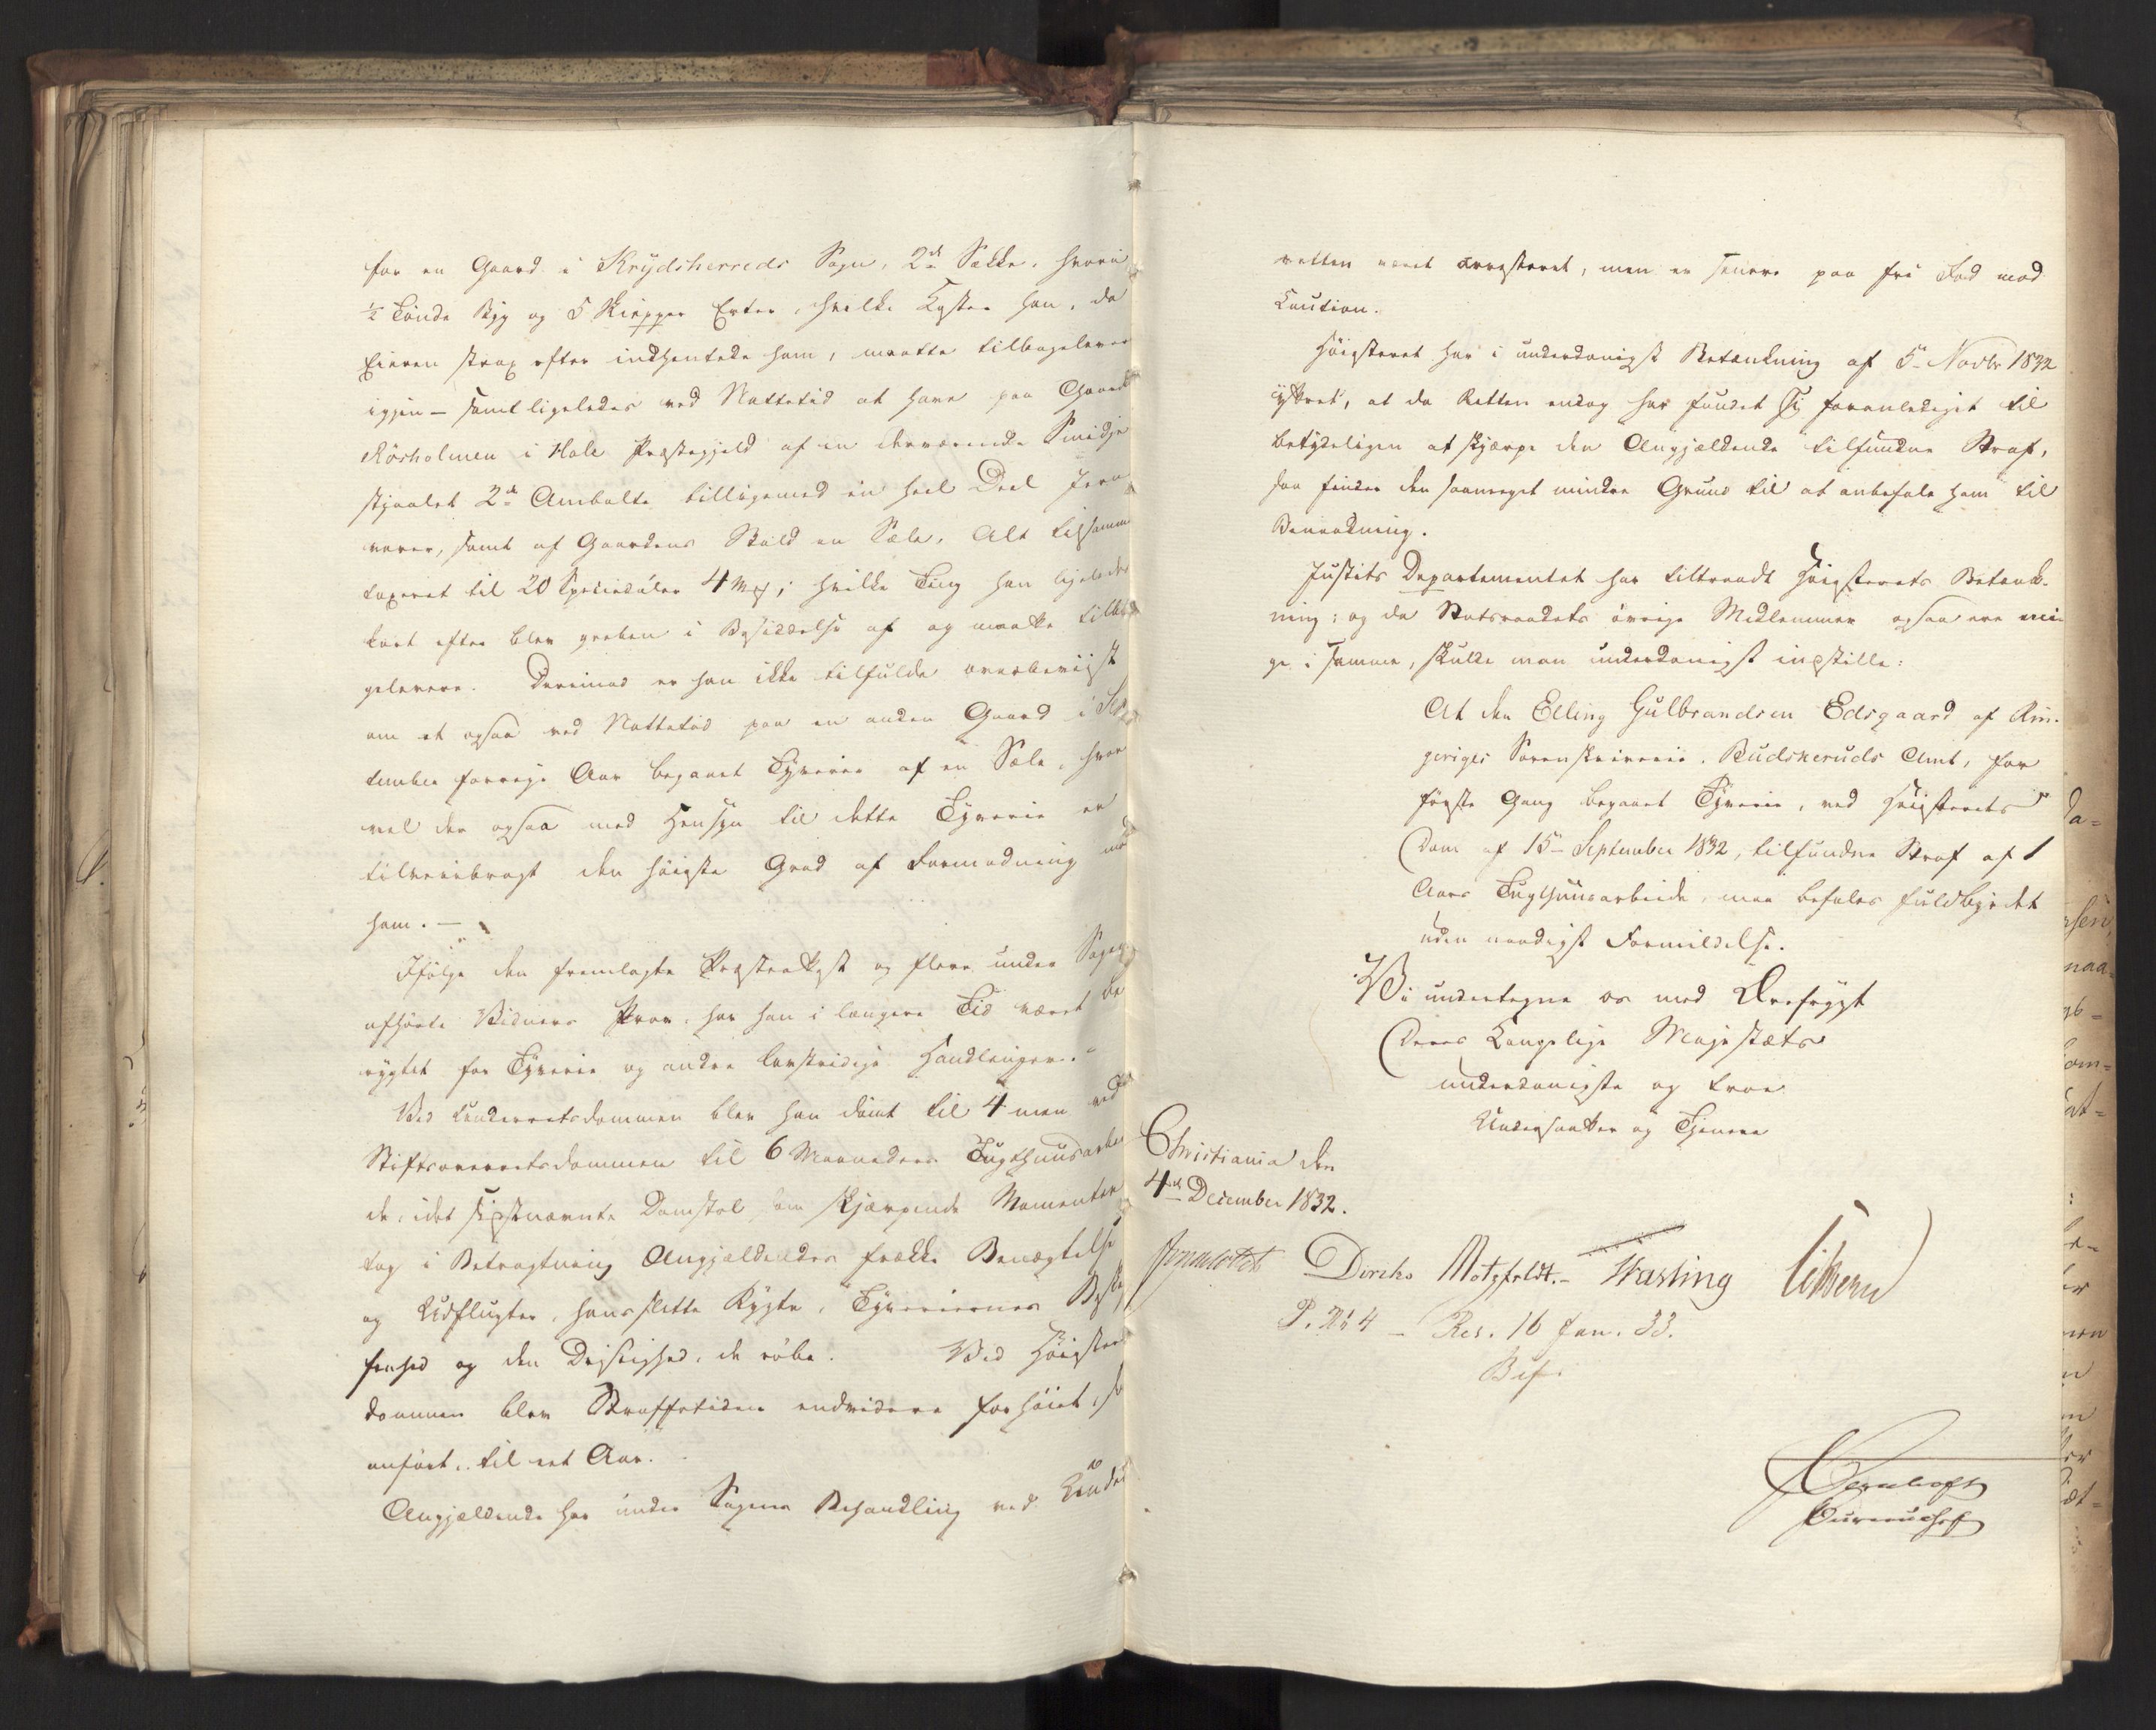 for en Gaard i Krydsherreds Sogn, 2de Sække, hvori
½ Tønde Byg og 5 Skiepper Erter, hvilke Koster han, da
Eieren strax efter indhentede ham, maatte tilbagelevere
igjen – samt ligeledes ved Nattetid at have paa Gaard
Rørholmen i Hole Præstegjeld af en derværende Smidje
stjaalet 2de Ambolte tilligemed en heel Deel Jern
varer, samt af Gaardens Stald en Sæle, Alt tilsamm
taxeret til 20 Speciedaler 4 Mrk; hvilke Ting han ligeledes
kort efter blev greben i Besiddelse af og maatte tilba
gelevere. Derimod er han ikke tilfulde overbeviist
om at ogsaa ved Nattetid paa en anden Gaard i Sep
tember forrige Aar begaaet Tyverie af en Sæle, hvor
vel der ogsaa med Hensyn til dette Tyverie er
tilveiebragt den høieste Grad af Formodning mod
ham. –
Ifølge den fremlagte Præsteattest og flere under Sagen
afhørte Vidners Prov, har han i længere Tid været be
rygtet for Tyverie og andre lovstridige Handlinger.
Ved Underretsdommen blev han dømt til 4 men ved
Stiftsoverretsdommen til 6 Maaneders Tugthuusarbei
de, idet sidstnævnte Domstol som skjærpende Momenter
tog i Betragtning Angjældendes frække Benægtelse
og Udflugter, hans slette Rygte, Tyveriernes Beskaf
fenhed og den Dristighed, de røbe. Ved Høieste
dommen blev Straffetiden endvidere forhøiet, so
anført, til eet Aar.
Angjældende har under Sagens Behandling ved Under
retten været arresteret, men er senere paa fri Fod mod
Caution.
Høiesteret har i underdanigst Betænkning af 5te Novbr 1832
yttret, at da Retten endog har fundet sig foranlediget til
betydeligen at skjærpe den Angjældende tilfundne Straf,
saa finder den saameget mindre Grund til at anbefale ham til
Benaadning.
Justits Departementet har tiltraadt Høiesterets Betænk-
ning; og da Statsraadets øvrige Medlemmer ogsaa ere eni-
ge i samme, skulde man underdanigst indstille:
At den Elling Gulbrandsen Edsgaard af Rin-
geriges Sorenskriverie, Budskeruds Amt, for
første Gang begaaet Tyverie, ved Høiesterets
Dom af 15de September 1832, tilfundne Straf af 1
Aars Tugthuusarbeide, maa befales fuldbyrdet
uden naadigst Formildelse.
Vi undertegne os med Ærefrygt
Deres Kongelige Majestæts
underdanigste og troe
Undersaatter og Tjenere
Christiania den
4de December 1832.
Diriks Motzfeldt. – Fasting Vibe
P. No 4 – Res. 16 Jan. 33.
Bif.
Bureauchef